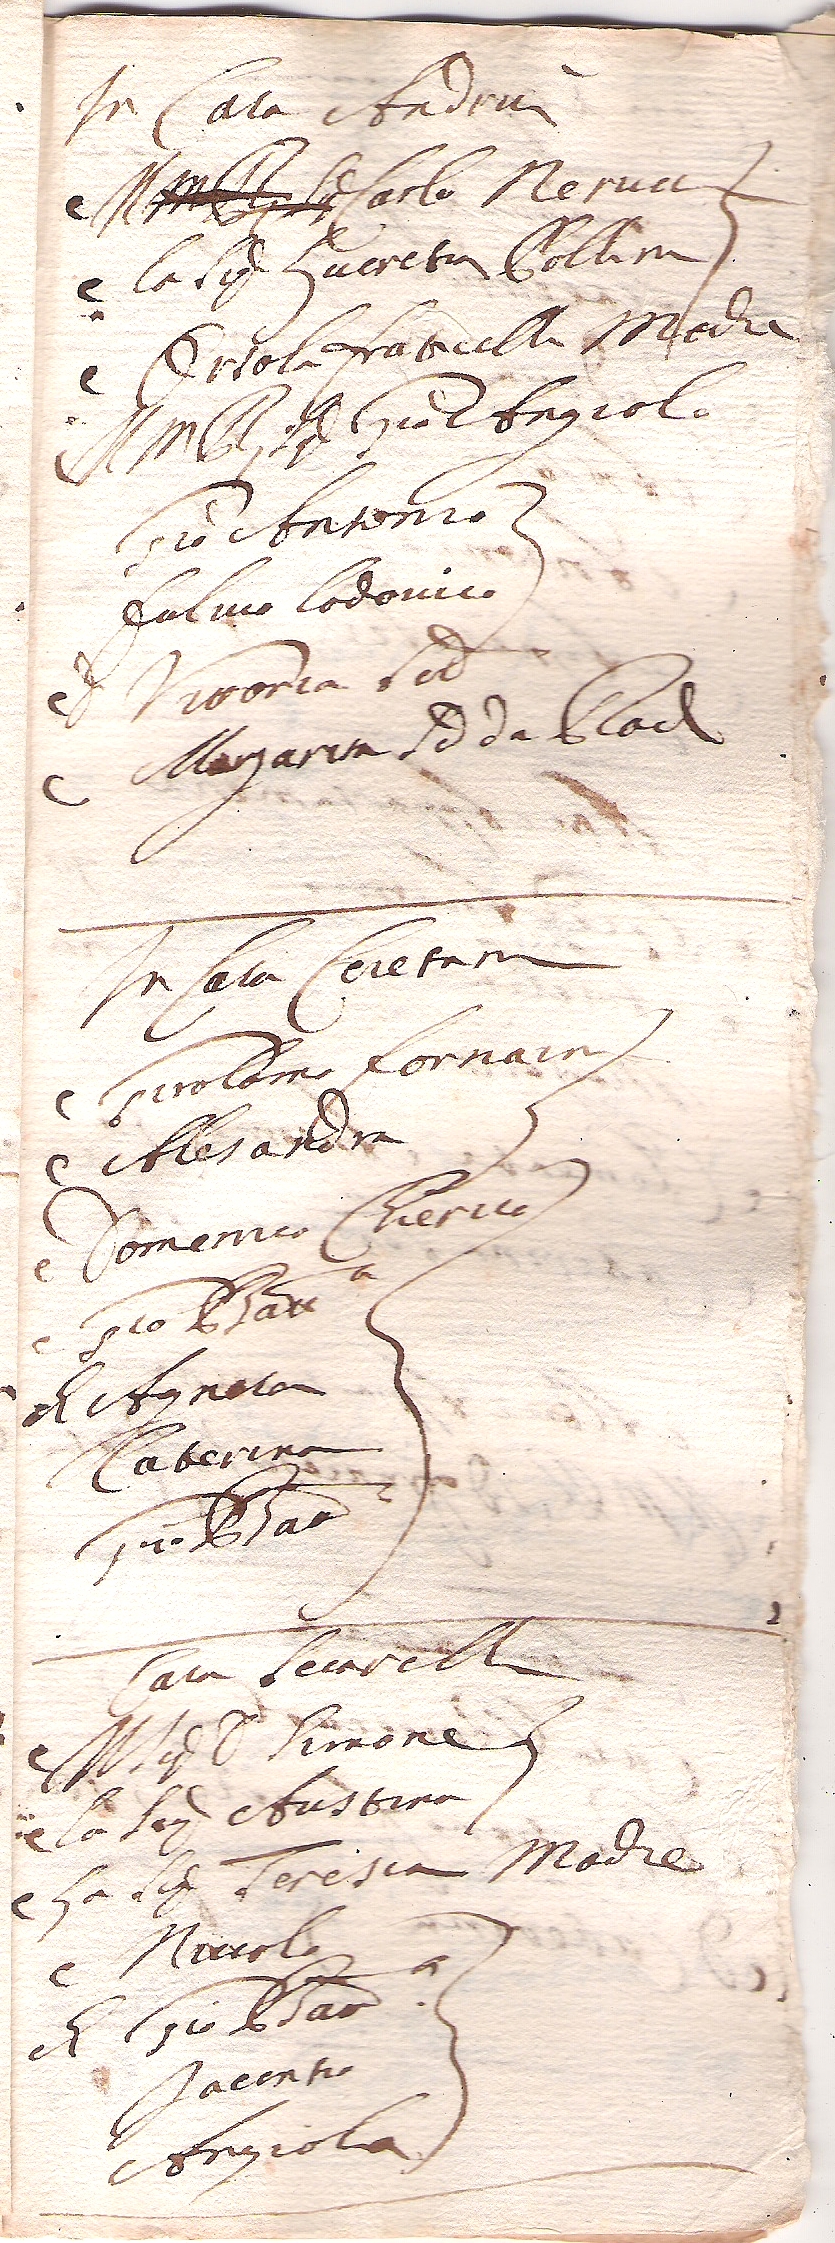 In Casa Andrui
e M Carlo Nerucci
e la Sig Lucretia Bollini
e Orsola fraticelli Madre
M M R Sig Gio Angiolo
Gio Antonio
fulvio lodovico
e Vittoria
e Margarita da
In Casa Ceretani
e Girolamo fornain
e Allesandra
e Domenico Chierici
e Gio Batta
Agnesa
Caterina
Gio Batta
Casa Secarelli
e M Sig Simone
e la Sig Austina
e La Sig Teresia Madre
e Niccolo
Gio Batta
Jacento
Angiola